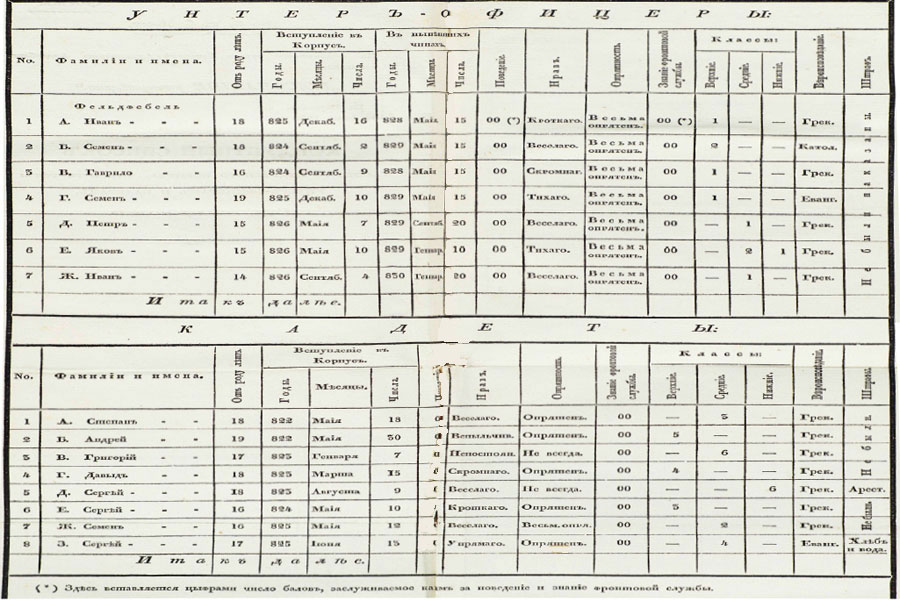 УНТЕРЪ-ОФИЦЕРЫ:
No. Фамиліи и имена. Отъ роду лѣтъ. Вступленіе въ Корпусъ. Годы. Мѣсяцы. Числа. Въ нынѣшнихъ чинахъ. Годы. Мѣсяцы. Числа. Поведеніе. Нравъ. Опрятность. Знаніе фронтовой службы. Классы: Верхніе. Средніе. Нижніе. Вѣроисповѣданіе. Штрафъ.
Фельдфебель
1 А. Иванъ - - - 18 825 Декаб. 16 828 Маія 15 00 (*) Кроткаго. Весьма опрятенъ. 00 (*) 1 — — Грек.
2 Б. Семенъ - - - 18 824 Сентяб. 2 829 Маія 15 00 Веселаго. Весьма опрятенъ. 00 2 — — Катол.
3 В. Гаврило - - 16 824 Сентяб. 9 828 Маія 15 00 Скромнаг. Весьма опрятенъ. 00 1 — — Грек.
4 Г. Семенъ - - - 19 825 Декаб. 10 829 Маія 15 00 Тихаго. Весьма опрятенъ. 00 1 — — Еванг.
5 Д. Петръ - - - 15 826 Маія 7 829 Сентяб. 20 00 Веселаго. Весьма опрятенъ. 00 — 1 — Грек.
6 Е. Яковъ - - - 15 826 Маія 10 829 Генвар. 10 00 Тихаго. Весьма опрятенъ. 00 — 2 1 Грек.
7 Ж. Иванъ - - - 14 826 Сентяб. 4 830 Генвар. 20 00 Веселаго. Весьма опрятенъ. 00 — 1 — Грек.
Не были наказаны
И такъ далѣе.
КАДЕТЫ:
No. Фамиліи и имена. Отъ роду лѣтъ. Вступленіе въ Корпусъ. Годы. Мѣсяцы. Числа. Нравъ. Опрятность. Знаніе фронтовой службы. Классы: Верхніе. Средніе. Нижніе. Вѣроисповѣданіе. Штрафъ.
1 А. Степанъ - - 18 822 Маія 18 Веселаго. Опрятенъ. 00 — — Грек.
2 Б. Андрей - - 19 822 Маія 30 Вспыльчив. Опрятенъ. 00 5 — — Грек.
3 В. Григорій - - 17 823 Генваря 7 Непостоян. Не всегда. 00 — 6 — Грек.
4 Г. Давыдъ - - 18 823 Марта 15 Скромнаго. Опрятенъ. 00 4 — — Грек.
Не был.
5 Д. Сергѣй - - - 18 823 Августа 9 Веселаго. Не всегда. 00 — — 6 Грек. Арест.
6 Е. Сергѣй - - - 16 824 Маія 10 Кроткаго. Опрятенъ. 00 — — Грек.
7 Ж. Семенъ - - 16 825 Маія 12 Веселаго. Весьм. опря. 00 — 2 — Грек.
8 З. Сергѣй - - - 17 825 Іюня 15 Упрямаго. Опрятенъ. 00 — 4 — Еванг. Хлѣбъ и вода.
И такъ далѣе.
(*) Здѣсь вставляется цыфрами число баловъ, заслуживаемое каѣмъ за поведеніе и знаніе фронтовой службы.